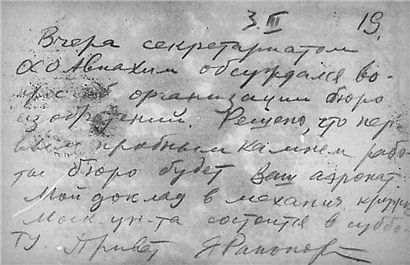 3.III 19.
Вчера секретариатом
ОАвиахим обсуждался во-
рос об организации бюро
изобретений. Решено, что пер
вым пробным камнем рабо-
ты бюро будет Ваш аэрокат.
Мой доклад в механич кружке
Моск ун-та состоится в суббо-
ту. Привет